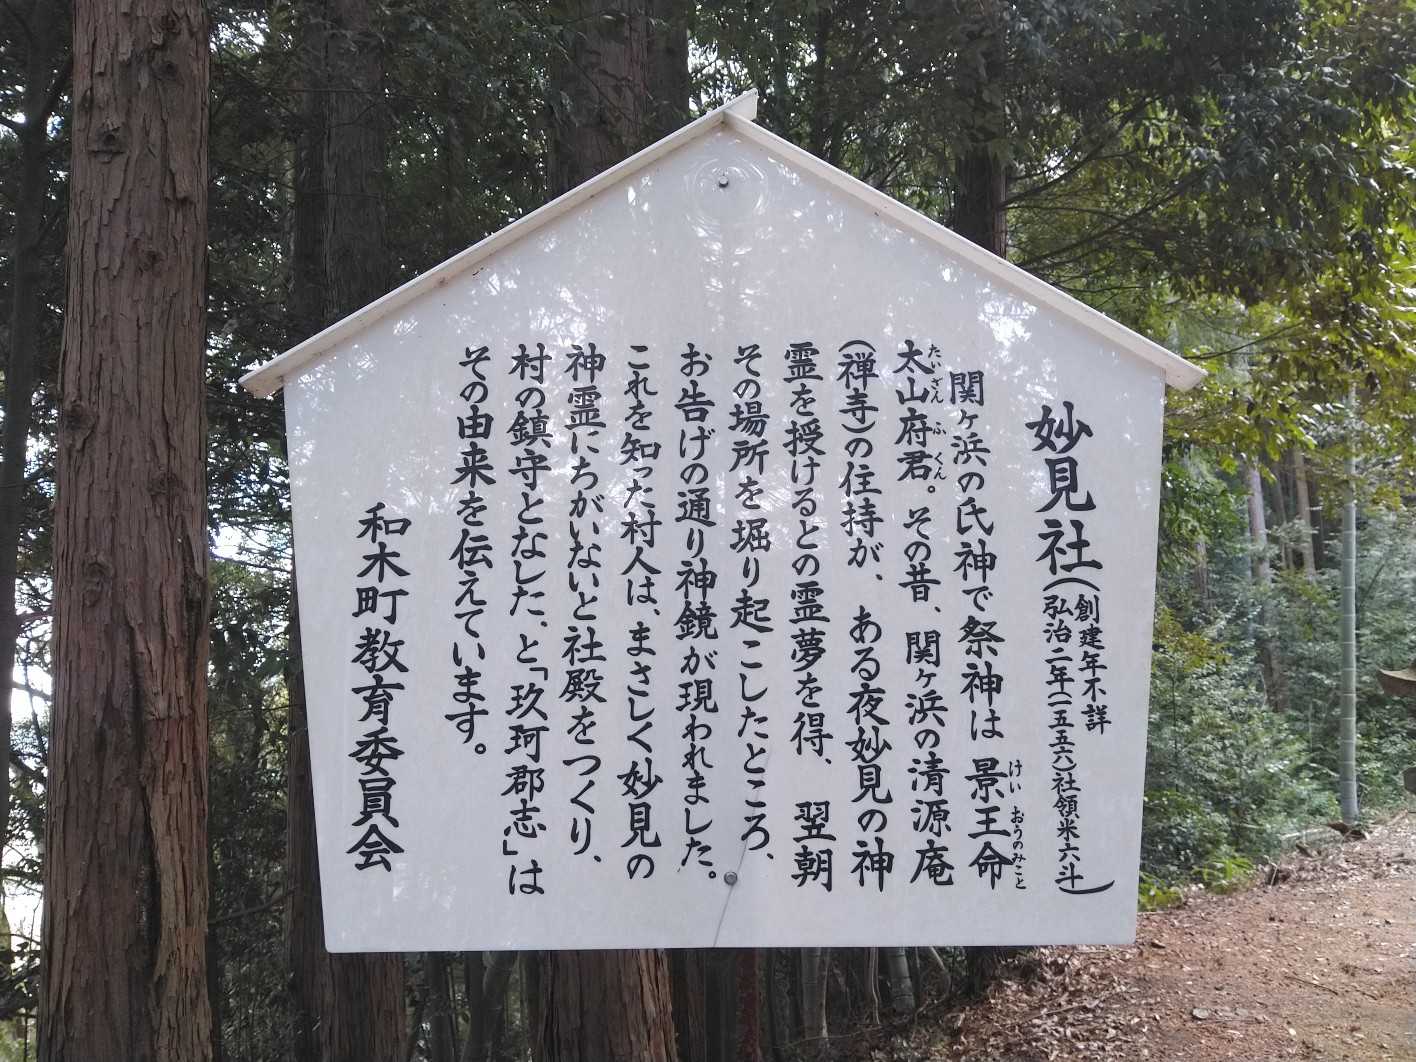 妙見社(創建年不詳
弘治二年(一五五六)社領米六斗)
関ヶ浜の氏神で祭神は 景王命
けい おうのみこと
太山府君。その昔、関ヶ浜の清源庵
たいざん ふ くん
(禅寺)の住持が、ある夜妙見の神
霊を授けるとの霊夢を得、翌朝
その場所を堀り起こしたところ、
お告げの通り神鏡が現われました。
これを知った村人は、まさしく妙見の
神霊にちがいないと社殿をつくり、
村の鎮守となした、と「玖珂郡志」は
その由来を伝えています。
和木町教育委員会